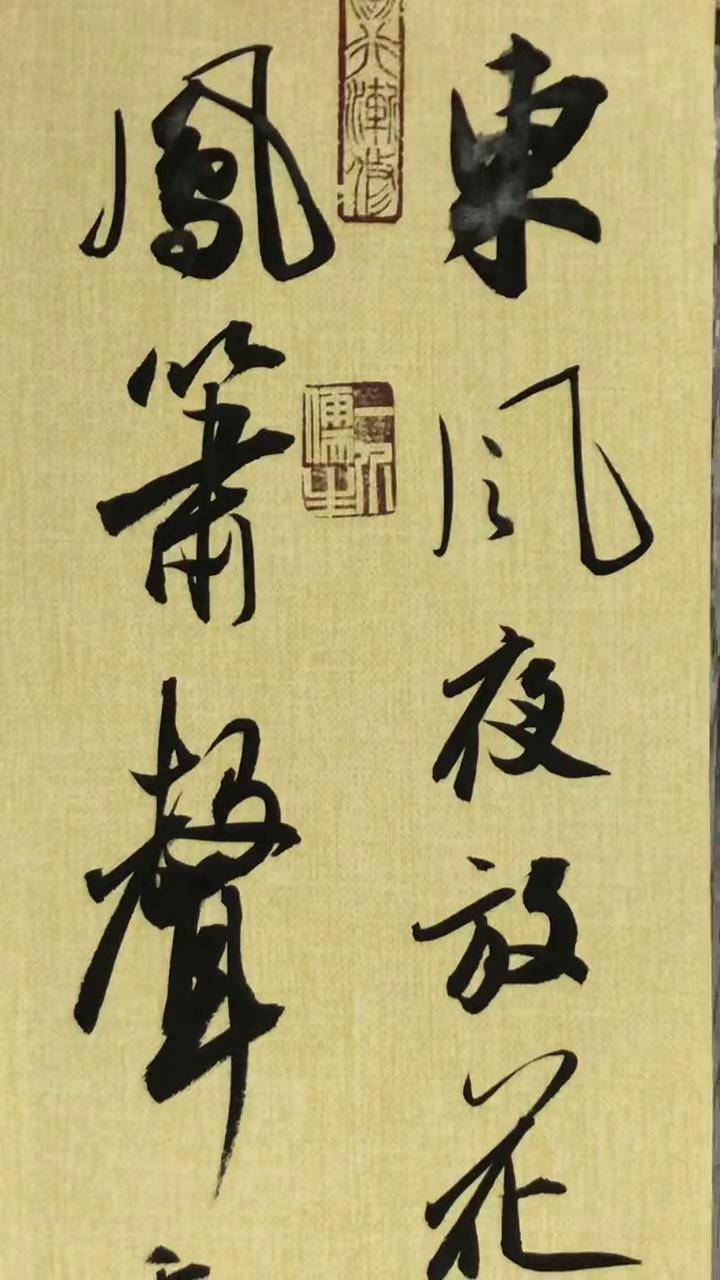 東風夜放花
鳳簫聲